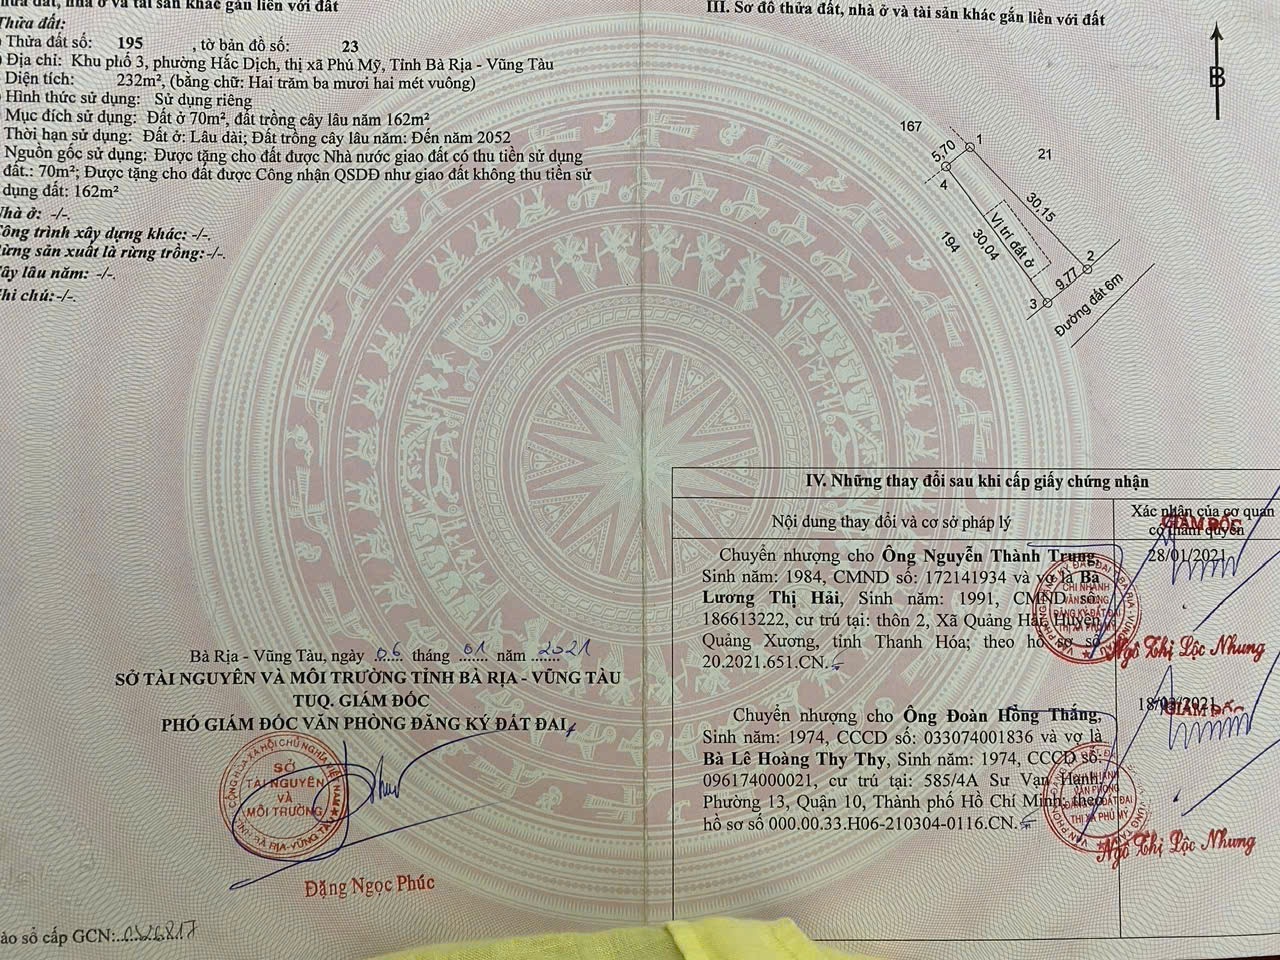 nhà ở và tài sản khác gắn liền với đất
Thửa đất:
Thửa đất số: 195 , tờ bản đồ số: 23
Địa chỉ: Khu phố 3, phường Hắc Dịch, thị xã Phú Mỹ, Tỉnh Bà Rịa - Vũng Tàu
Diện tích: 232m², (bằng chữ: Hai trăm ba mươi hai mét vuông)
Hình thức sử dụng: Sử dụng riêng
Mục đích sử dụng: Đất ở 70m², đất trồng cây lâu năm 162m²
Thời hạn sử dụng: Đất ở: Lâu dài; Đất trồng cây lâu năm: Đến năm 2052
Nguồn gốc sử dụng: Được tặng cho đất được Nhà nước giao đất có thu tiền sử dụng
đất.: 70m²; Được tặng cho đất được Công nhận QSDĐ như giao đất không thu tiền sử
dụng đất: 162m²
Nhà ở: -/-.
Công trình xây dựng khác: -/-.
Rừng sản xuất là rừng trồng:-/-.
Cây lâu năm: -/-.
Ghi chú:-/-.
Bà Rịa - Vũng Tàu, ngày 06 tháng 01 năm 2021
SỞ TÀI NGUYÊN VÀ MÔI TRƯỜNG TỈNH BÀ RỊA - VŨNG TÀU
TUQ. GIÁM ĐỐC
PHÓ GIÁM ĐỐC VĂN PHÒNG ĐĂNG KÝ ĐẤT ĐAI
SỞ
TÀI NGUYÊN
VÀ
MÔI TRƯỜNG
Đặng Ngọc Phúc
vào sổ cấp GCN:
III. Sơ đồ thửa đất, nhà ở và tài sản khác gắn liền với đất
B
167
5,70
1
21
4
30,15
Vị trí đất ở
194
30,04
2
9,77
3
Đường đất 6m
IV. Những thay đổi sau khi cấp giấy chứng nhận
Nội dung thay đổi và cơ sở pháp lý
Xác nhận của cơ quan
có thẩm quyền
GIÁM ĐỐC
Chuyển nhượng cho Ông Nguyễn Thành Trung,
Sinh năm: 1984, CMND số: 172141934 và vợ là Bà
Lương Thị Hải, Sinh năm: 1991, CMND số:
186613222, cư trú tại: thôn 2, Xã Quảng Hải, Huyện
Quảng Xương, tỉnh Thanh Hóa; theo hồ sơ số
20.2021.651.CN.
28/01/2021
CHI NHÁNH
VĂN PHÒNG
ĐĂNG KÝ ĐẤT ĐAI
THỊ XÃ PHÚ MỸ
Ngô Thị Lộc Nhung
Chuyển nhượng cho Ông Đoàn Hồng Thắng,
Sinh năm: 1974, CCCD số: 033074001836 và vợ là
Bà Lê Hoàng Thy Thy, Sinh năm: 1974, CCCD số:
096174000021, cư trú tại: 585/4A Sư Vạn Hạnh
Phường 13, Quận 10, Thành phố Hồ Chí Minh; theo
hồ sơ số 000.00.33.H06-210304-0116.CN.
GIÁM ĐỐC
CHI NHÁNH
VĂN PHÒNG
ĐĂNG KÝ ĐẤT ĐAI
THỊ XÃ PHÚ MỸ
Ngô Thị Lộc Nhung